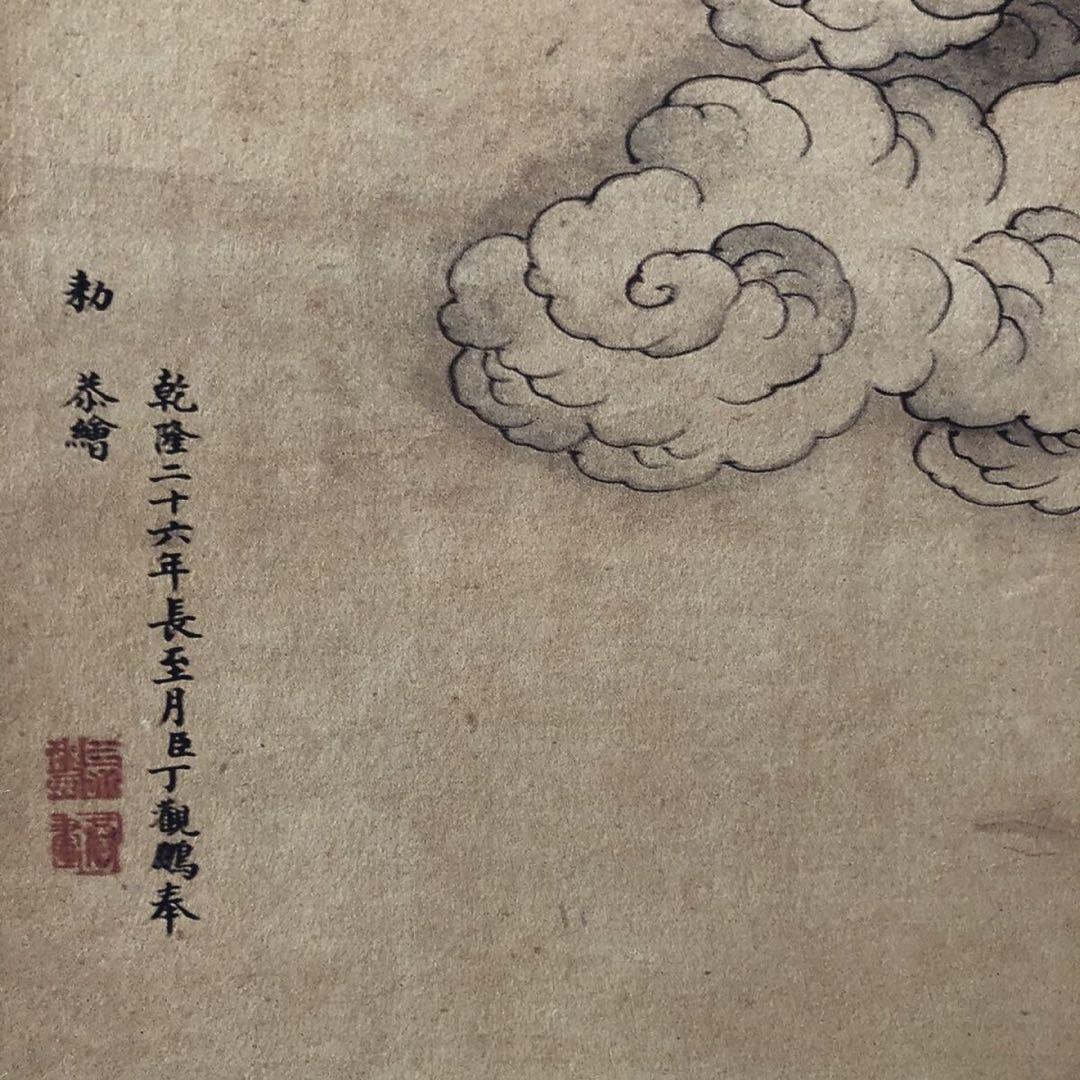 乾隆二十六年長至月臣丁觀鵬奉
勅 恭繪